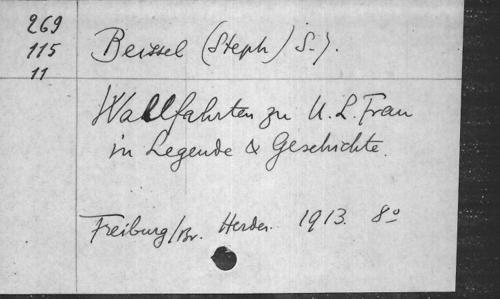 269
115
11
Beissel (Steph) S.J.
Wallfahrten zu U. L. Frau
in Legende & Geschichte.
Freiburg/Br. Herder. 1913. 8°